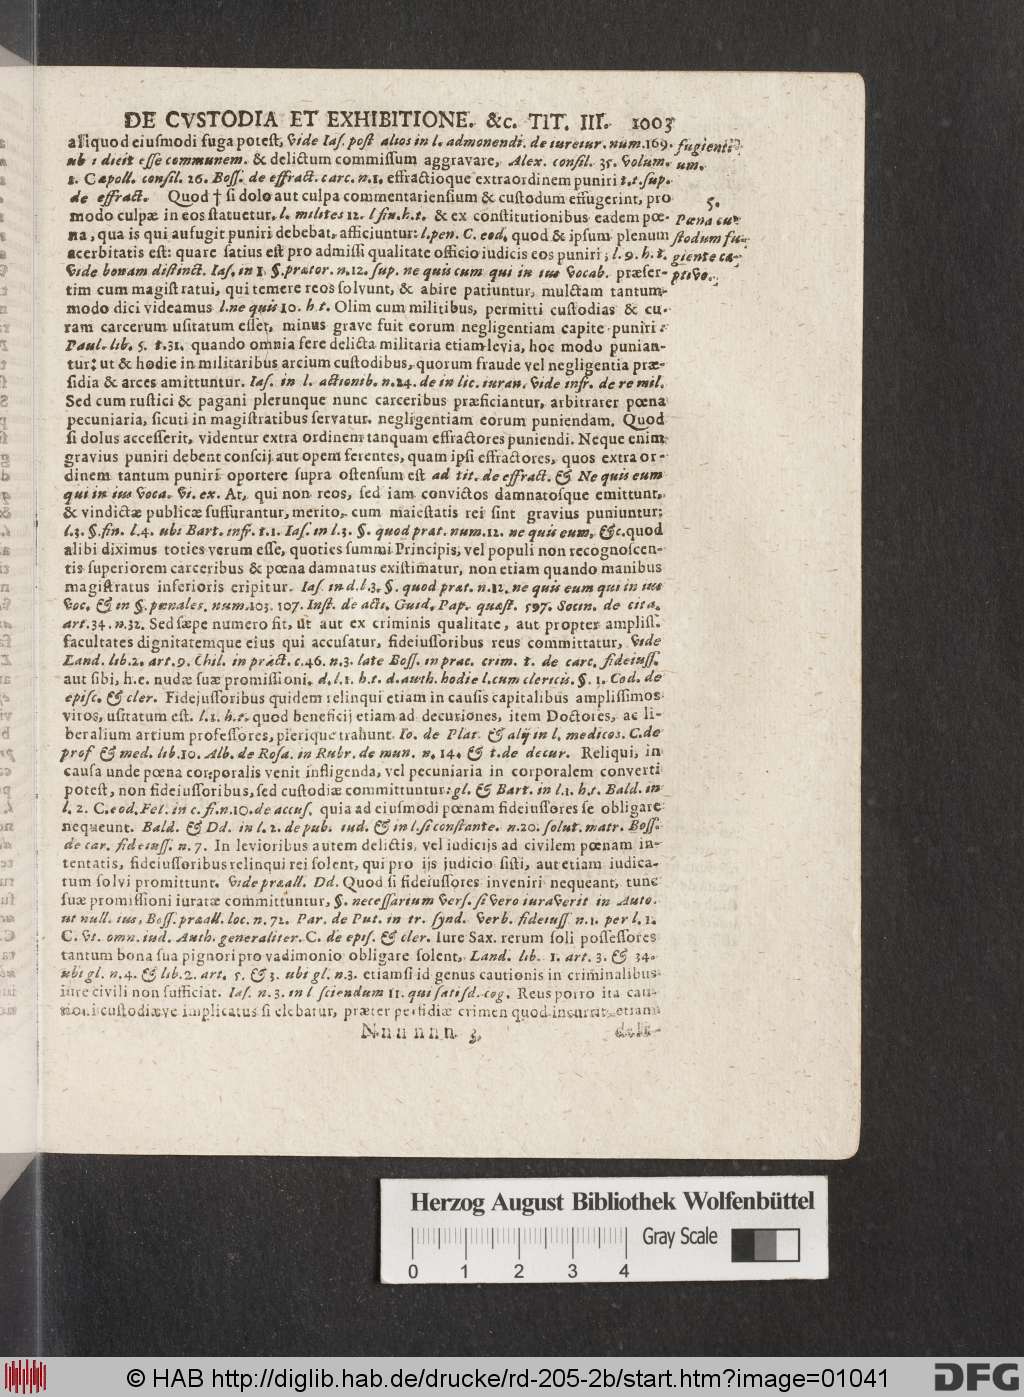 DE CVSTODIA ET EXHIBITIONE. &c. TIT. III. 1003
aliquod eiusmodi fuga potest, vide Ias. post alios in l. admonendi. de iureiur. num. 169.
ubi dicit esse communem. & delictum commissum aggravare, Alex. consil. 35. volum.
1. Capoll. consil. 26. Boss. de effract. carc. n. 1, effractioque extraordinem puniri t.t. sup.
de effract. Quod † si dolo aut culpa commentariensium & custodum effugerint, pro
modo culpæ in eos statuetur. l. milites 12. l fin. h.t. & ex constitutionibus eadem pœ-
na, qua is qui aufugit puniri debebat, afficiuntur: l. pen. C. eod. quod & ipsum plenum
acerbitatis est: quare satius est pro admissi qualitate officio iudicis eos puniri; l. 9. h.t.
Vide bonam distinct. Ias. in 1. §. prætor. n. 12. sup. ne quis cum qui in ius vocab. præser-
tim cum magistratui, qui temere reos solvunt, & abire patiuntur, mulctam tantum-
modo dici videamus l. ne quis 10. h.t. Olim cum militibus, permitti custodias & cu-
ram carcerum usitatum esset, minus grave fuit eorum negligentiam capite puniri:
Paul. lib. 5. t. 31. quando omnia fere delicta militaria etiam levia, hoc modo punian-
tur: ut & hodie in militaribus arcium custodibus, quorum fraude vel negligentia præ-
sidia & arces amittuntur. Ias. in l. actionib. n. 24. de in lic. iuran. vide infr. de re mil.
Sed cum rustici & pagani plerunque nunc carceribus præficiantur, arbitrarer pœna
pecuniaria, sicuti in magistratibus servatur, negligentiam eorum puniendam. Quod
si dolus accesserit, videntur extra ordinem tanquam effractores puniendi. Neque enim
gravius puniri debent conscij aut opem ferentes, quam ipsi effractores, quos extra or-
dinem tantum puniri oportere supra ostensum est ad tit. de effract. & Ne quis eum
qui in ius voca. vi. ex. At, qui non reos, sed iam convictos damnatosque emittunt,
& vindictæ publicæ suffurantur, merito, cum maiestatis rei sint gravius puniuntur:
l. 3. §. fin. l. 4. ubi Bart. infr. t. 1. Ias. in l. 3. §. quod præt. num. 12. ne quis eum, &c. quod
alibi diximus toties verum esse, quoties summi Principis, vel populi non recognoscen-
tis superiorem carceribus & pœna damnatus existimatur, non etiam quando manibus
magistratus inferioris eripitur. Ias. in d. l. 3. §. quod præt. n. 12. ne quis eum qui in ius
voc. & in §. pœnales. num. 103. 107. Inst. de acti. Guid. Pap. quæst. 597. Socin. de cita.
art. 34. n. 32. Sed sæpe numero fit, ut aut ex criminis qualitate, aut propter ampliss.
facultates dignitatemque eius qui accusatur, fideiussoribus reus committatur, vide
Land. lib. 2. art. 9. Chil. in pract. c. 46. n. 3. late Boss. in prac. crim. t. de carc. fideiuss.
aut sibi, h.e. nudæ suæ promissioni. d. l. 1. h.t. d. auth. hodie l. cum clericis. §. 1. Cod. de
episc. & cler. Fidejussoribus quidem relinqui etiam in causis capitalibus amplissimos
viros, usitatum est. l. 1. h.t. quod beneficij etiam ad decuriones, item Doctores, ac li-
beralium artium professores, plerique trahunt. Io. de Plat. & alij in l. medicos. C. de
prof & med. lib. 10. Alb. de Rosa. in Rubr. de mun. n. 14. & t. de decur. Reliqui, in
causa unde pœna corporalis venit infligenda, vel pecuniaria in corporalem converti
potest, non fideiussoribus, sed custodiæ committuntur: gl. & Bart. in l. 1. h.t. Bald. in
l. 2. C. eod. Fel. in c. fi. n. 10. de accus. quia ad eiusmodi pœnam fideiussores se obligare
nequeunt. Bald. & Dd. in l. 2. de pub. iud. & in l. si constante. n. 20. solut. matr. Boss.
de car. fideiuss. n. 7. In levioribus autem delictis, vel iudicijs ad civilem pœnam in-
tentatis, fideiussoribus relinqui rei solent, qui pro ijs judicio sisti, aut etiam iudica-
tum solvi promittunt. Vide præall. Dd. Quod si fideiussores inveniri nequeant, tunc
suæ promissioni iuratæ committuntur, §. necessarium vers. si vero iuraverit in Auto.
ut null. ius. Boss. præall. loc. n. 72. Par. de Put. in tr. synd. verb. fideiuss n. 1. per l. 1.
C. ut. omn. iud. Auth. generaliter. C. de epis. & cler. Iure Sax. rerum soli possessores
tantum bona sua pignori pro vadimonio obligare solent, Land. lib. 1. art. 3. & 34.
ubi gl. n. 4. & lib. 2. art. 5. & 3. ubi gl. n. 3. etiamsi id genus cautionis in criminalibus
iure civili non sufficiat. Ias. n. 3. in l sciendum 11. qui satisd. cog. Reus porro ita cau-
custodiæve implicatus si elebatur, præter perfidiæ crimen quod incurrit, etiam
Nnn nnn 3.
fugienti-
um.
5.
Pœna cu-
stodum fu-
giente ca-
ptivo.
Herzog August Bibliothek Wolfenbüttel
Gray Scale
0 1 2 3 4
© HAB http://diglib.hab.de/drucke/rd-205-2b/start.htm?image=01041
DFG